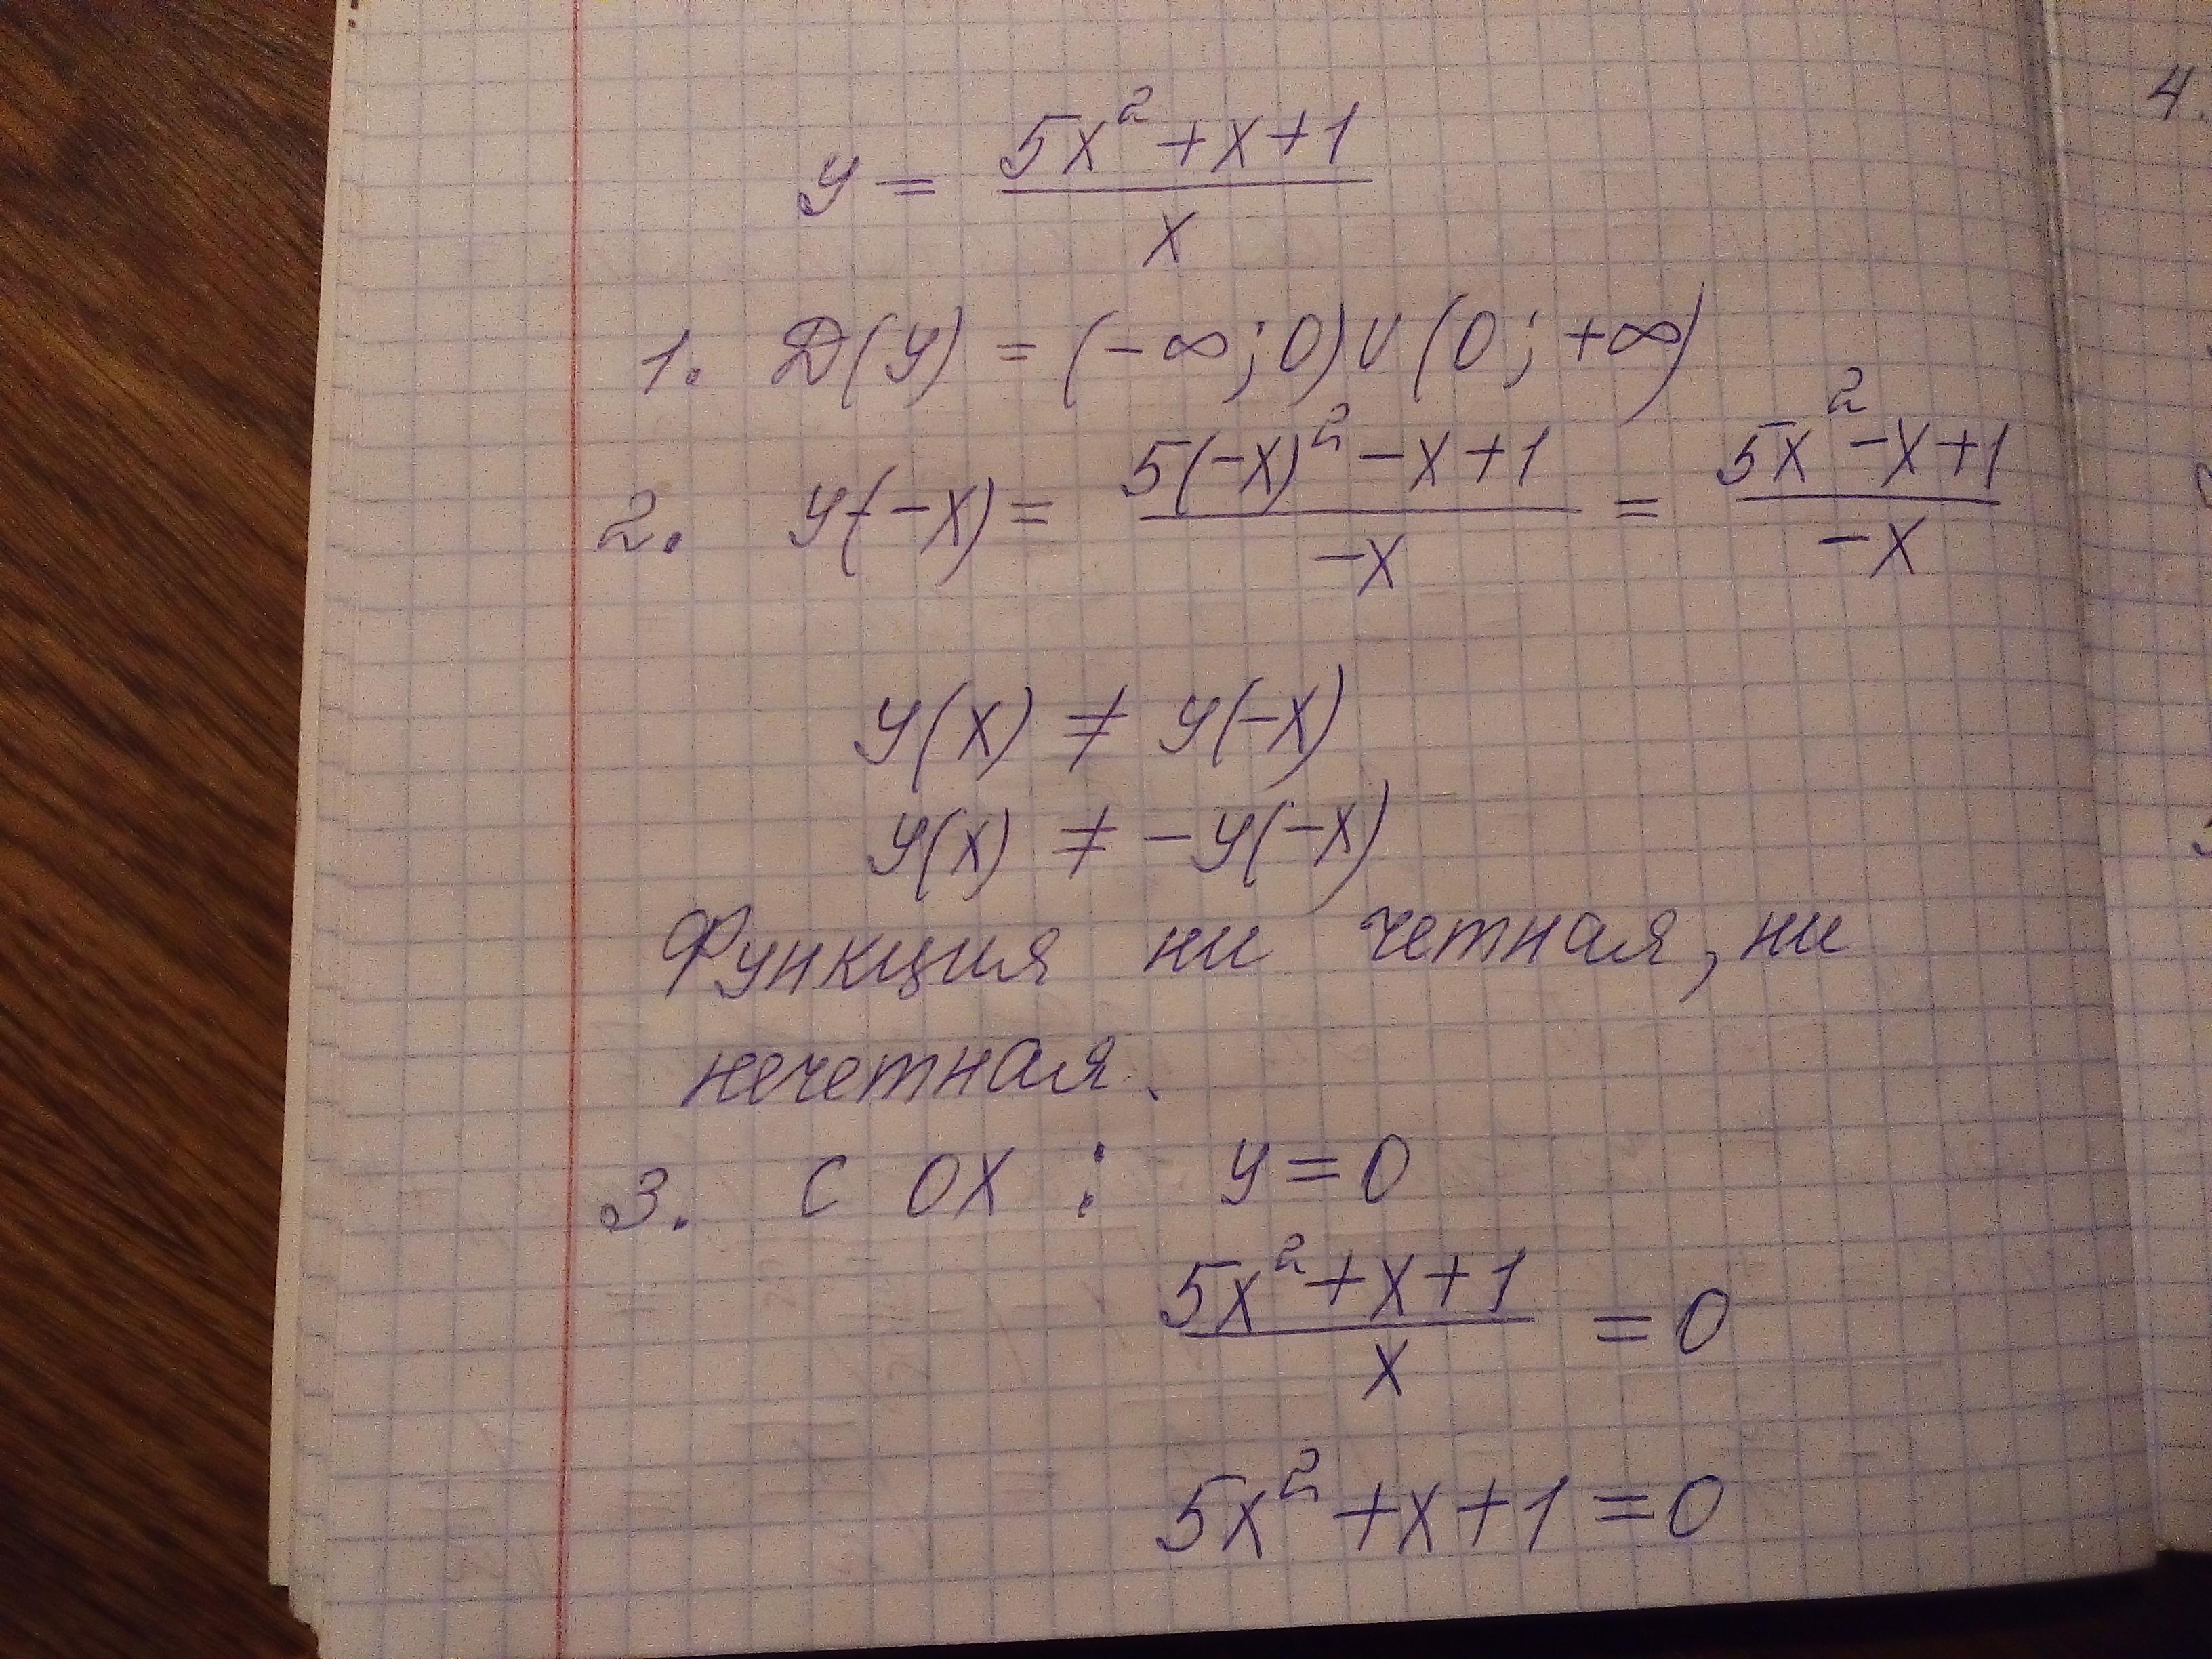 y = (5x² + x + 1) / x
1. D(y) = (-∞; 0) ∪ (0; +∞)
2. y(-x) = (5(-x)² - x + 1) / -x = (5x² - x + 1) / -x
y(x) ≠ y(-x)
y(x) ≠ -y(-x)
Функция ни четная, ни
нечетная.
3. С OX : y = 0
(5x² + x + 1) / x = 0
5x² + x + 1 = 0
4.